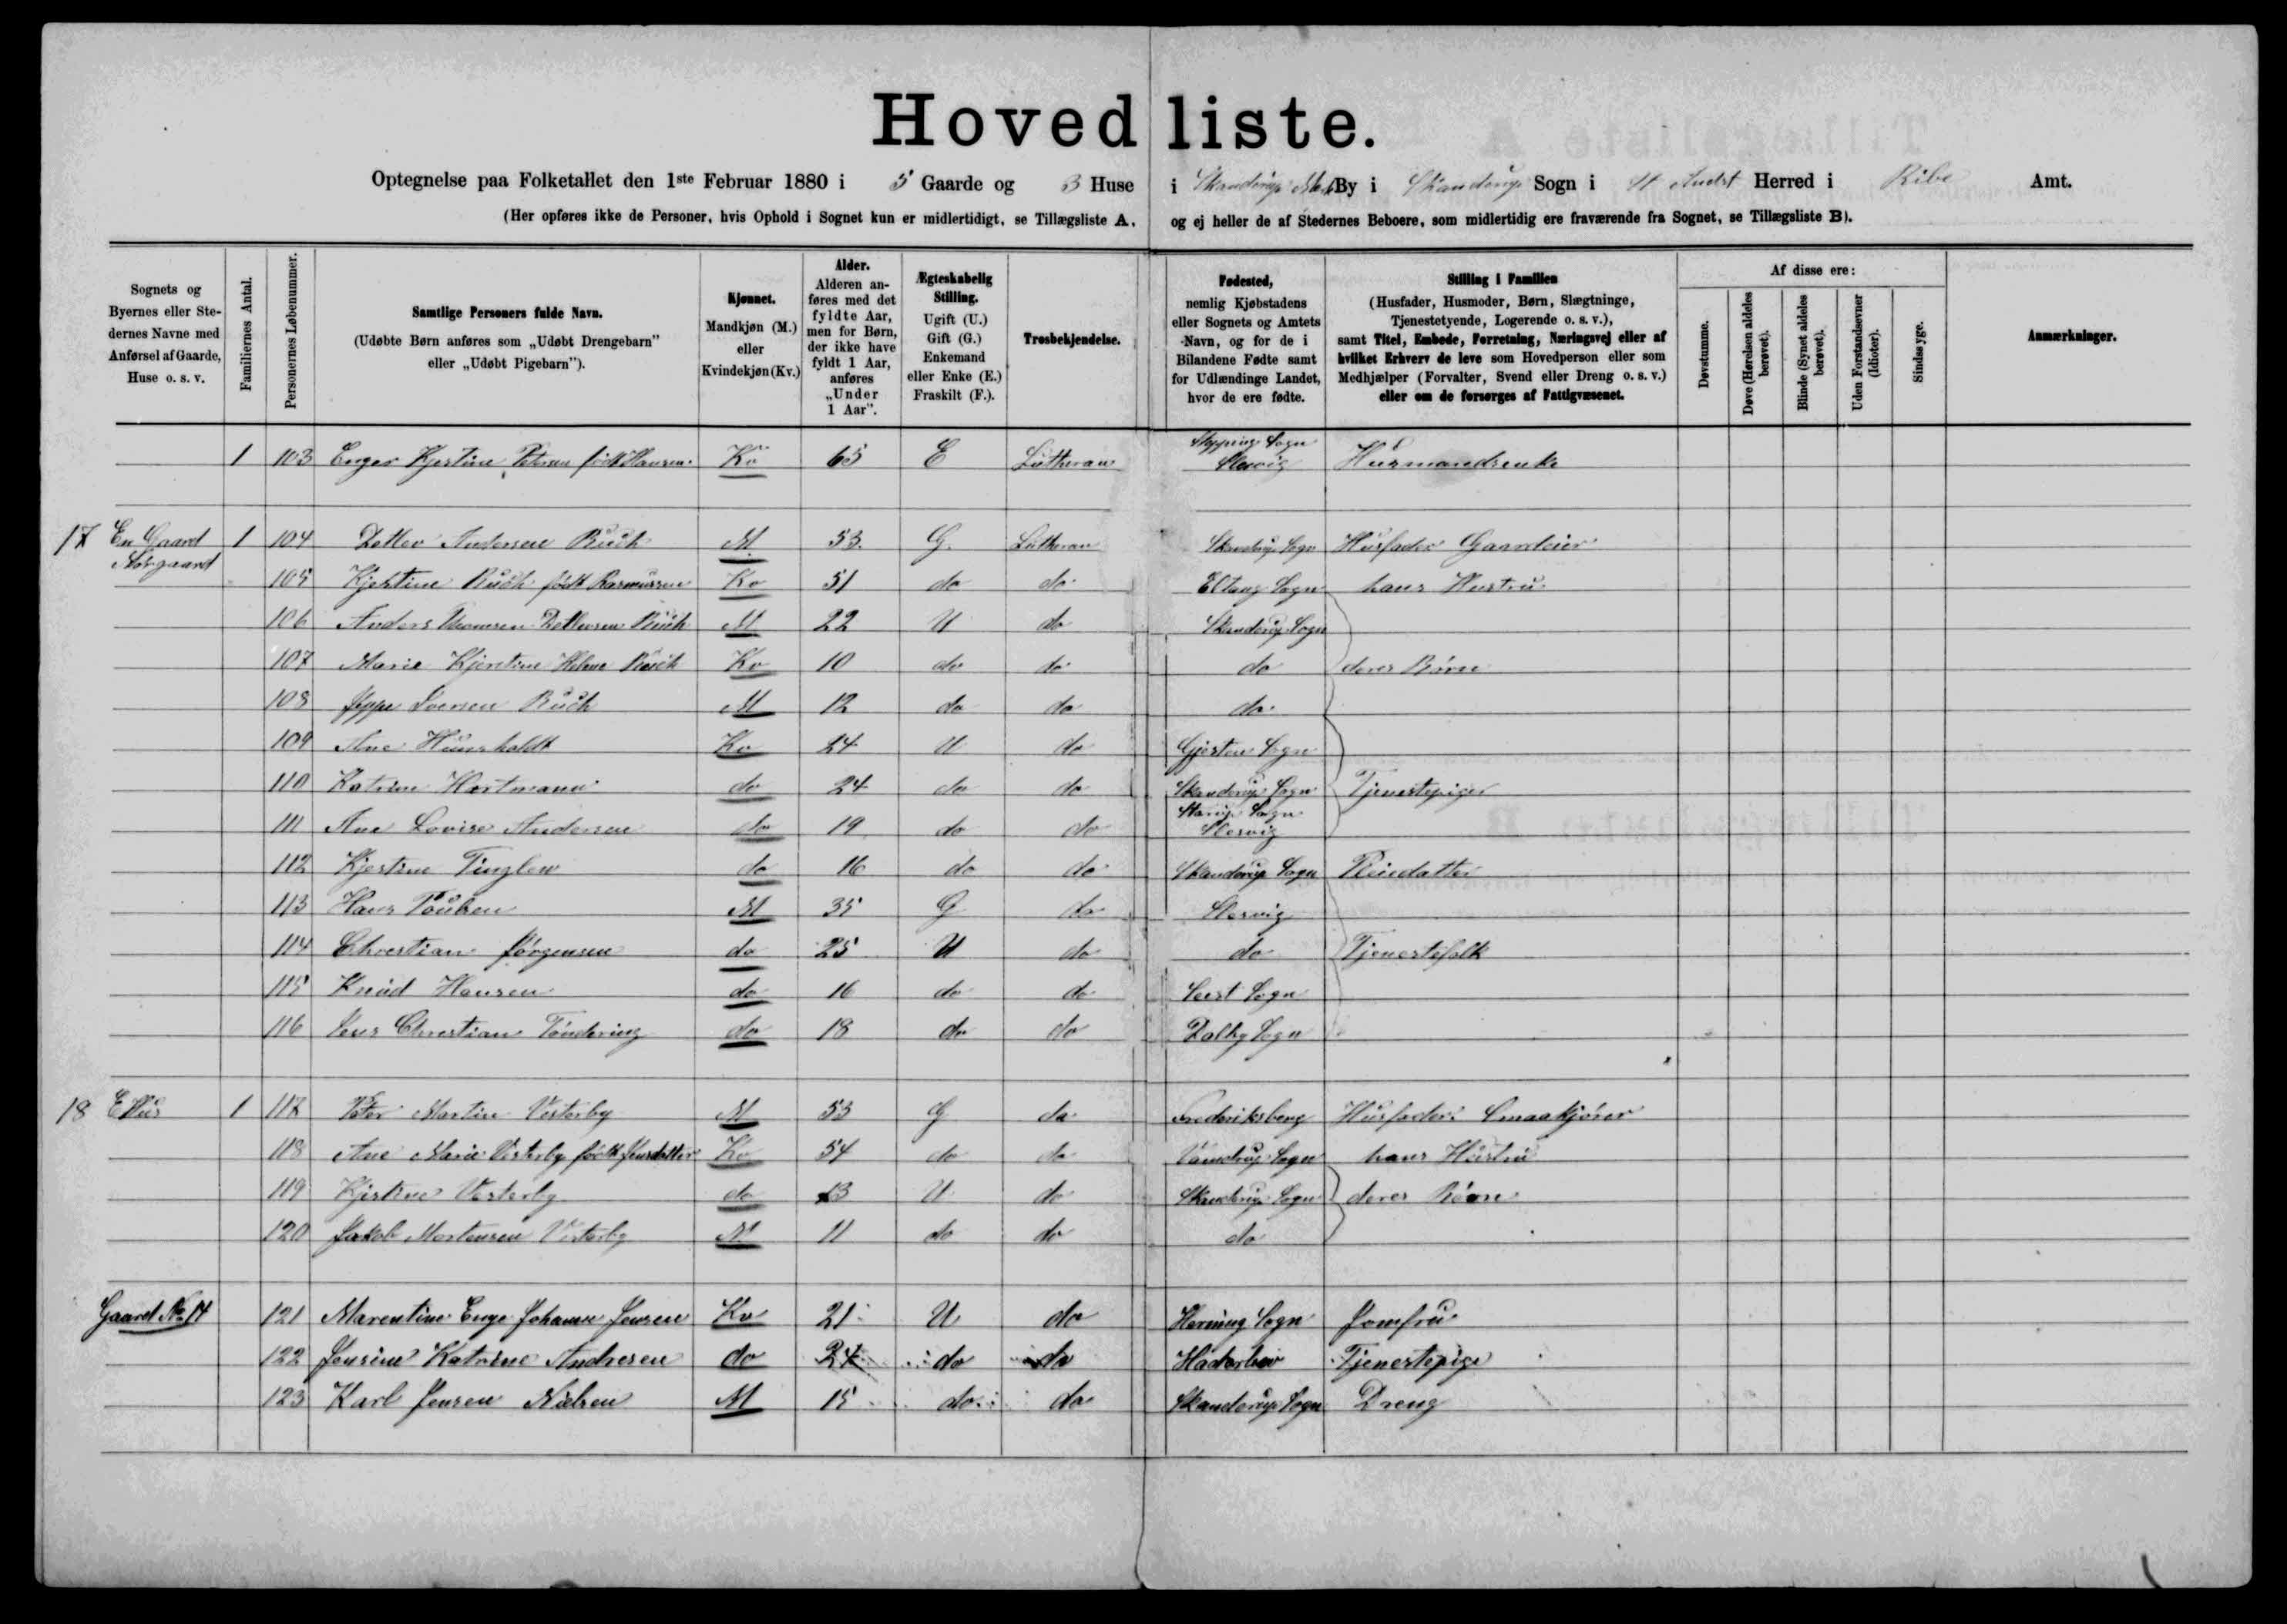 Hovedliste.
Optegnelse paa Folketallet den 1ste Februar 1880 i 5 Gaarde og 3 Huse i Skanderup Mark By i Skanderup Sogn i Andst Herred i Ribe Amt.
(Her opføres ikke de Personer, hvis Ophold i Sognet kun er midlertidigt, se Tillægsliste A, og ej heller de af Stedernes Beboere, som midlertidig ere fraværende fra Sognet, se Tillægsliste B).
Sognets og Byernes eller Stedernes Navne med Anførsel af Gaarde, Huse o. s. v.
Familiernes Antal.
Personernes Løbenummer.
Samtlige Personers fulde Navn.
(Udøbte Børn anføres som „Udøbt Drengebarn" eller „Udøbt Pigebarn").
Kjønnet.
Mandkjøn (M.) eller Kvindekjøn (Kv.)
Alder.
Alderen anføres med det fyldte Aar, men for Børn, der ikke have fyldt 1 Aar, anføres „Under 1 Aar".
Ægteskabelig Stilling.
Ugift (U.) Gift (G.) Enkemand eller Enke (E.) Fraskilt (F.).
Trosbekjendelse.
Fødested,
nemlig Kjøbstadens eller Sognets og Amtets Navn, og for de i Bilandene Fødte samt for Udlændinge Landet, hvor de ere fødte.
Stilling i Familien
(Husfader, Husmoder, Børn, Slægtninge, Tjenestetyende, Logerende o. s. v.), samt Titel, Embede, Forretning, Næringsvej eller af hvilket Erhverv de leve som Hovedperson eller som Medhjælper (Forvalter, Svend eller Dreng o. s. v.) eller om de forsørges af Fattigvæsenet.
Af disse ere:
Døvstumme.
Døve (Hørelsen aldeles berøvet).
Blinde (Synet aldeles berøvet).
Uden Forstandsevner (Idioter).
Sindssyge.
Anmærkninger.
1 103 Enger Kjestine Petersen født Hansen Kv 65 E Lutheran Sogn Slesvig Husmandsenke
17 En Gaard 1 104 Detlev Andersen Buch M 53 G Lutheran Skanderup Sogn Husfader Gaardeier
105 Kjestine Buch født Rasmussen Kv 51 do do Eltang Sogn hans Hustru
106 Anders Thomsen Detlevsen Buch M 22 U do Skanderup Sogn
107 Marie Kjerstine Helene Buch Kv 10 do do do deres Børn
108 Jeppe Iversen Buch M 12 do do do
109 Ane Hunsholdt Kv 24 U do Gjesten Sogn
110 Katrine Hortmann do 24 do do Skanderup Sogn Tjenestepiger
111 Ane Lovise Andersen do 19 do do Starup Sogn Slesvig
112 Kjestine Tinglev do 16 do do Skanderup Sogn Pleiedatter
113 Hans Pouhen M 35 G do Slesvig
114 Chrestian Jørgensen do 25 U do do Tjenestefolk
115 Knud Hansen do 16 do do Seest Sogn
116 Jens Chrestian Tøndering do 18 do do Dalby Sogn
18 Et Hus 1 117 Peter Martin Vesterby M 53 G do Frederiksberg Husfader Smaakjører
118 Ane Marie Vesterby født Jensdatter Kv 54 do do Vamdrup Sogn hans Hustru
119 Kjestine Vesterby do 13 U do Skanderup Sogn deres Børn
120 Jakob Mortensen Vesterby M 11 do do do
Gaard No 14 121 Marentine Enge Johanne Jensen Kv 21 U do Herning Sogn Jomfru
122 Jensine Katrine Andresen do 24 do do Haderslev Tjenestepige
123 Karl Jensen Nielsen M 15 do do Skanderup Sogn Dreng